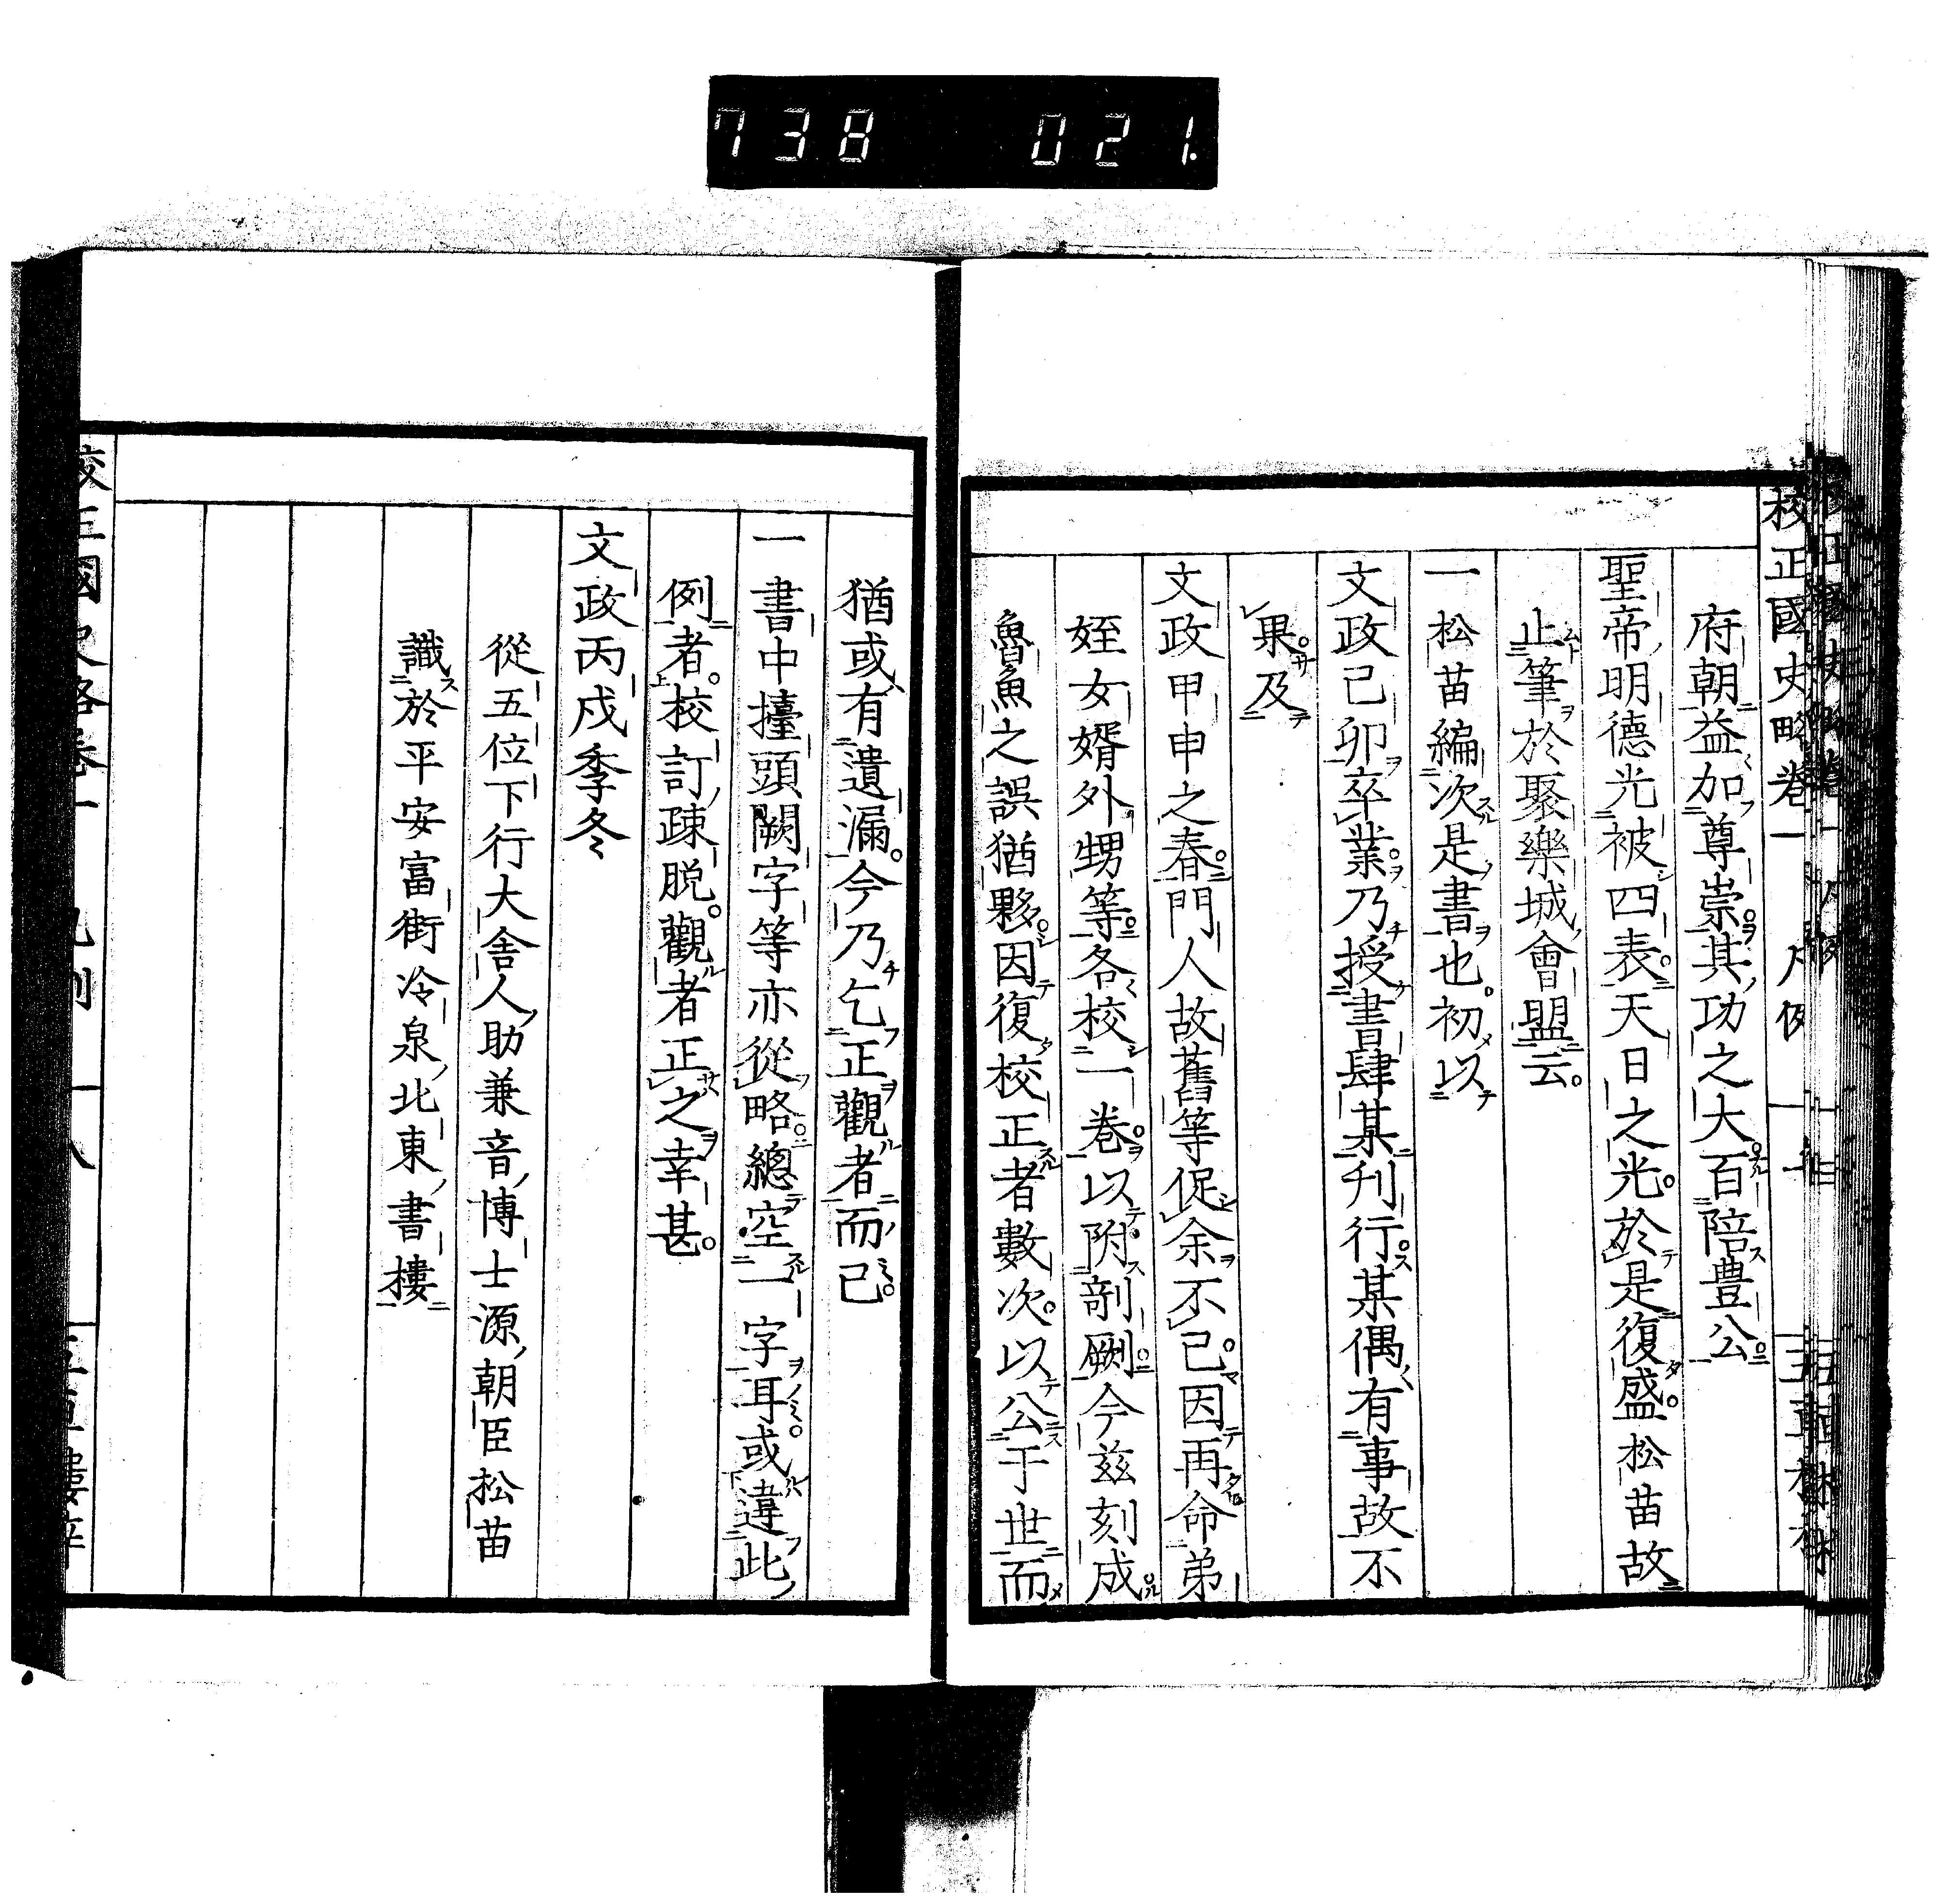 738 021.
校正國史略卷一 凡例
府朝益加尊崇其功之大百陪豊公
聖帝明德光被四表天日之光於是復盛松苗故
止筆於聚樂城會盟云
一松苗編次是書也初以
文政己卯卒業乃授書肆某刊行某偶有事故不
果及
文政甲申之春門人故舊等促余不已因再命弟
姪女婿外甥等各校一卷以附剞劂今茲刻成
魯魚之誤猶夥因復校正者數次以公于世而
猶或有遺漏今乃乞正觀者而已
一書中擡頭闕字等亦從略總空一字耳或違此
例者校訂疎脱觀者正之幸甚
文政丙戌季冬
從五位下行大舎人助兼音博士源朝臣松苗
識於平安富街冷泉北東書樓